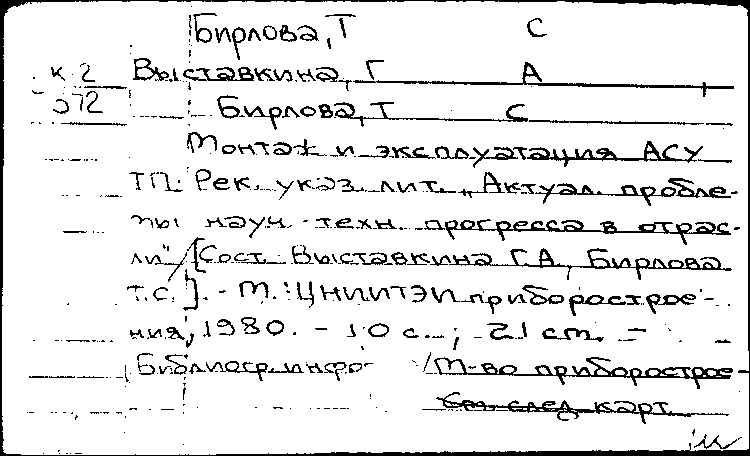 Бирлова, Т С
к 2 Выставкина, Г А
Э72 Бирлова, Т С
Монтаж и эксплуатация АСУ
ТП: Рек. указ. лит. „Актуал. пробле-
мы науч.-техн. прогресса в отрас-
ли" /[Сост. Выставкина Г.А., Бирлова
Т.С.]. - М.: ЦНИИТЭИ приборострое-
ния, 1980. - 10 с. ; 21 см. -
Библиогр. инфо- /М-во приборострое-
См. след. карт.